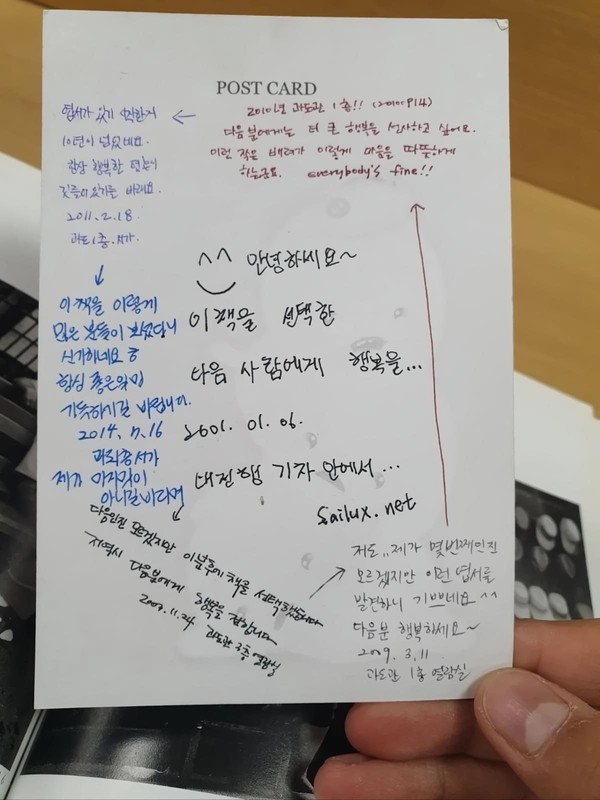 POST CARD
^^ 안녕하세요~
이 책을 선택한
다음 사람에게 행복을...
2001. 01. 06.
대전행 기차 안에서...
sailux.net
다음인진 모르겠지만 이 날 후에 책을 선택했습니다
저역시 다음분에게 행복을 전합니다
2007. 11. 24 과도관 3층 열람실
저도.. 제가 몇번째인진
모르겠지만 이런 엽서를
발견하니 기쁘네요^^
다음분 행복하세요~
2009. 3. 11
과도관 1층 열람실
2010년 과도관 1층!! (20100914)
다음 분에게는 더 큰 행복을 선사하고 싶어요.
이런 작은 배려가 이렇게 마음을 따뜻하게
하는군요. everybody's fine!!
엽서가 있기 시작한지
10년이 넘었네요.
항상 행복한 일들이
있기를 바래요.
2011. 2. 18.
과도 1층 서가.
이 책을 이렇게
많은 분들이 보셨다니
신기하네요 ㅎ
항상 좋은일만
가득하시길 바랍니다.
2014. 7. 16
과도 서가
제가 마지막이
아니길 바라며